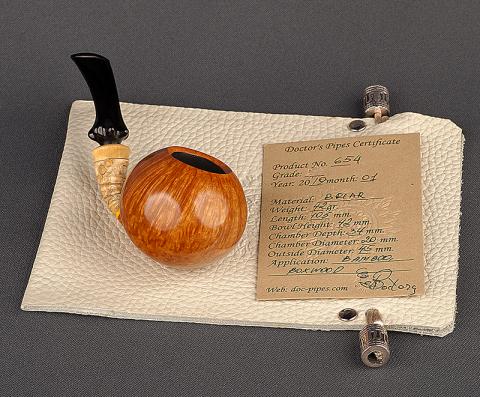 Doctor's Pipes Certificate
Product No. 654
Grade:
Year: 2018 month: 01
Material: BRIAR
Weight: gr.
Length: 105 mm.
Bowl Height: 42 mm.
Chamber Depth: 34 mm.
Chamber Diameter: 20 mm.
Outside Diameter: 45 mm.
Application: BAMBOO
BOXWOOD
Web: doc-pipes.com